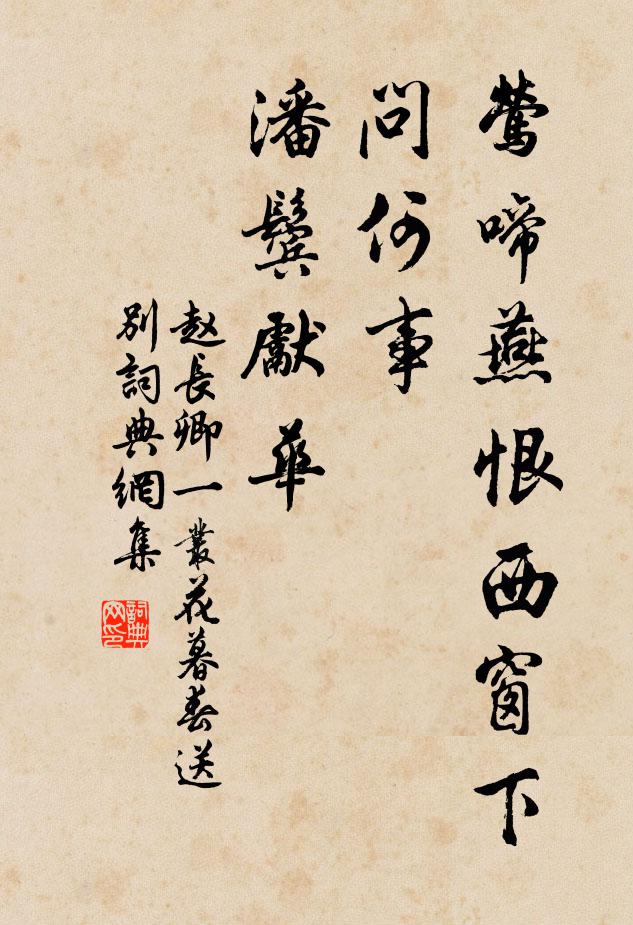 鶯啼燕恨西窗下
問何事
潘鬢獻華
赵長卿一叢花暮春送
別詞典網集
詞典网印